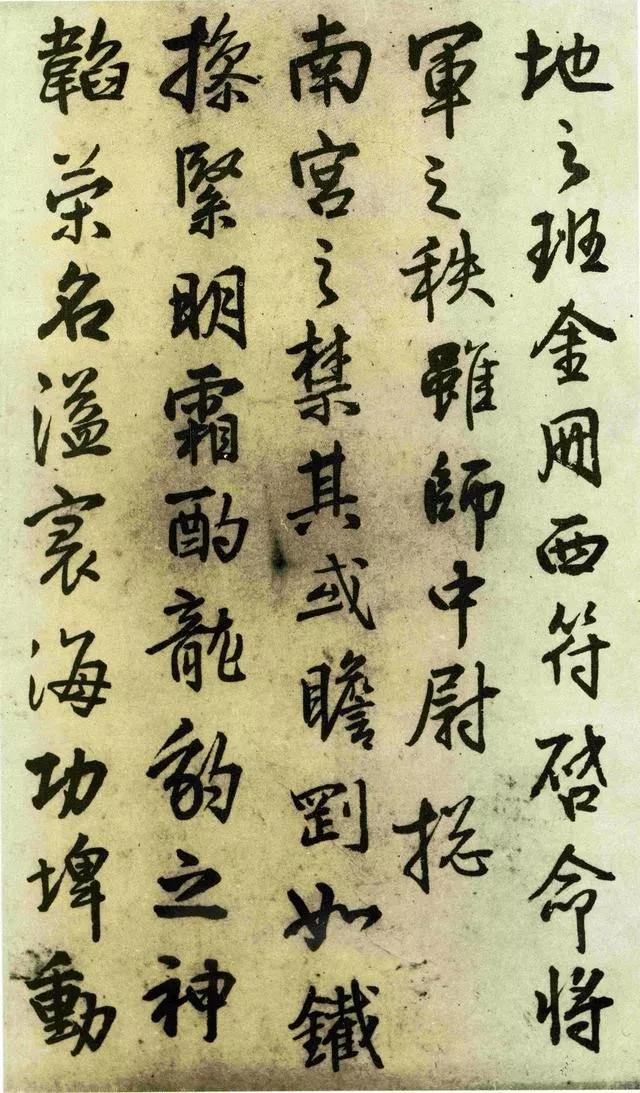 地之班金冊西符啓命將
軍之秩雖師中尉捴
南宮之禁其或瞻劉如鐵
操緊明霜酌龍豹之神
韜榮名溢寰海功埤動